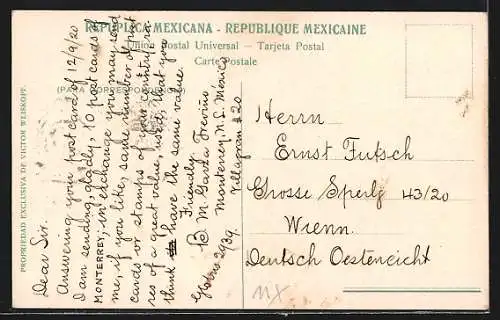 REPUBLICA MEXICANA - REPUBLIQUE MEXICAINE
Union Postal Universal - Tarjeta Postal
Carte Postale
(PARA CORRESPONDENCIA)
PROPRIEDAD EXCLUSIVA DE VICTOR WEISKOPF.
Dear Sir.
Answering your post card of 12/9/20
I am sending, gladly, 10 post cards of
MONTERREY; in exchange you may send
me, if you like, same number of post
cards or stamps of your country ra-
res of a great value, used, that you
think have the same value.
Friendly,
B. M. Garza Trevino
Monterrey, N.L. Mexico
Villagran 120
Herrn
Ernst Futsch
Grosse Sperlg 43/20
Wienn.
Deutsch Oesterreicht